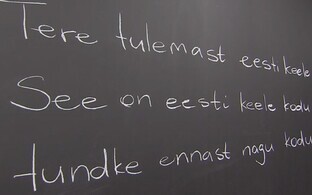 Tere tulemast eesti keele
See on eesti keele kodu
tundke ennast nagu kodu